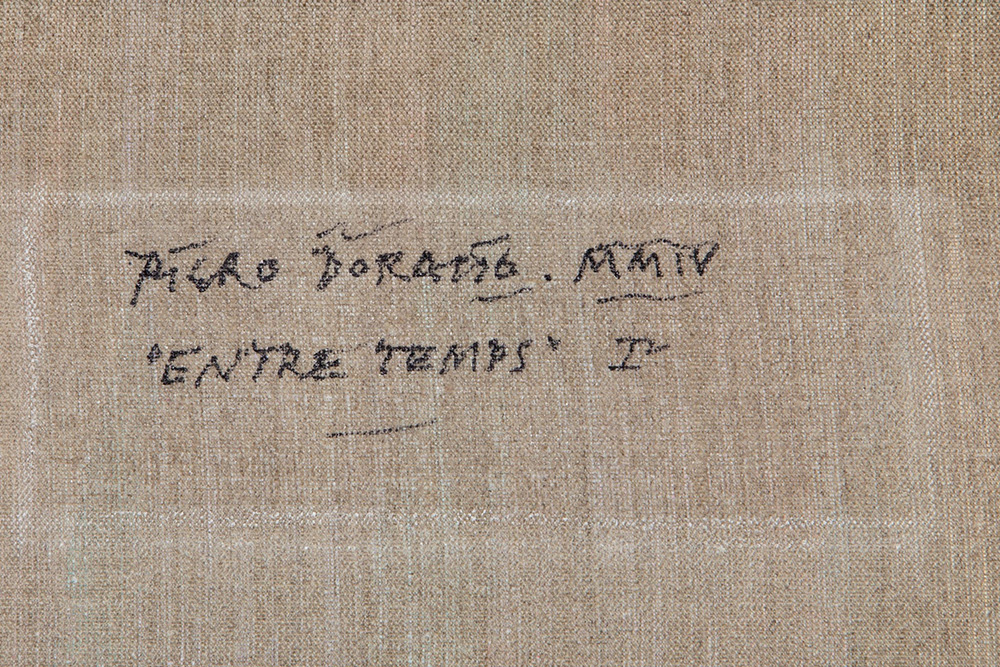 PIERO DORAZIO. MMIV
"ENTRE TEMPS" I